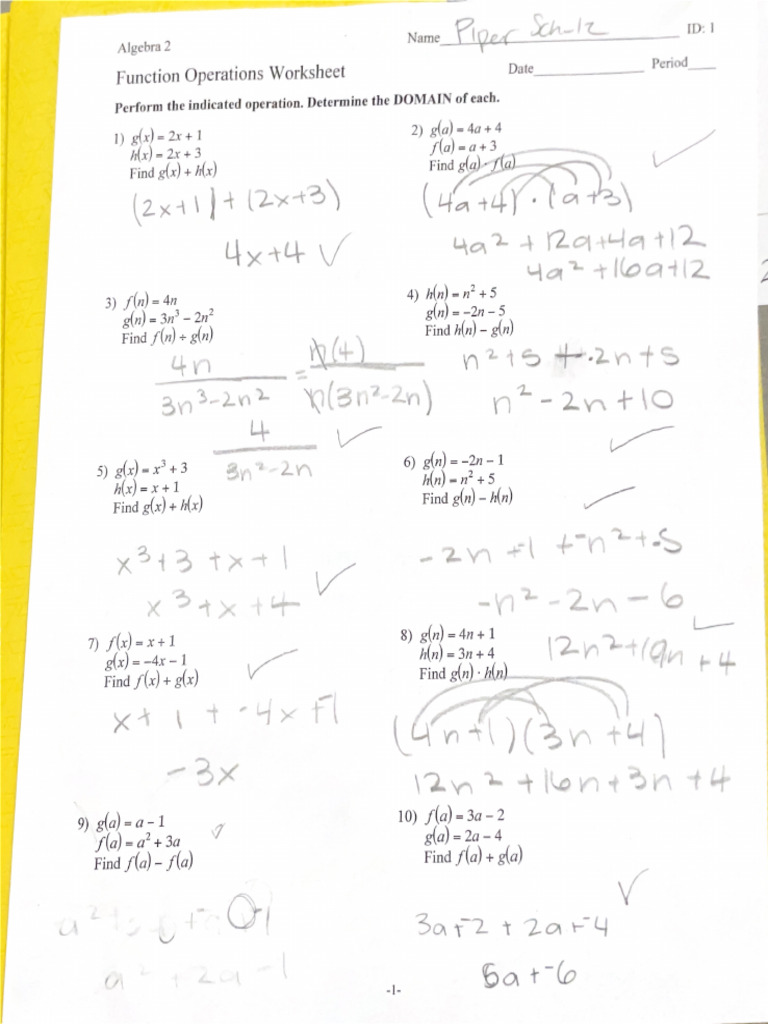 Algebra 2
Name Piper Sch-lz ID: 1
Function Operations Worksheet
Date Period
Perform the indicated operation. Determine the DOMAIN of each.
1) g(x) = 2x + 1
h(x) = 2x + 3
Find g(x) + h(x)
(2x+1) + (2x+3)
4x+4 ✓
2) g(a) = 4a + 4
f(a) = a + 3
Find g(a) · f(a)
✓
(4a+4) · (a+3)
4a² + 12a+4a+12
4a² +16a+12
3) f(n) = 4n
g(n) = 3n³ − 2n²
Find f(n) ÷ g(n)
4n / 3n³-2n² = n(4) / n(3n²-2n)
4 / 3n²-2n ✓
4) h(n) = n² + 5
g(n) = −2n − 5
Find h(n) − g(n)
n²+5 + -2n+5
n² - 2n +10
✓
5) g(x) = x³ + 3
h(x) = x + 1
Find g(x) + h(x)
x³+3 +x+1
x³+x+4 ✓
6) g(n) = −2n − 1
h(n) = n² + 5
Find g(n) − h(n)
✓
-2n +-1 +-n²+-5
-n² -2n - 6
7) f(x) = x + 1
g(x) = −4x − 1
Find f(x) + g(x)
✓
x+1 + -4x +-1
-3x
8) g(n) = 4n + 1
h(n) = 3n + 4
Find g(n) · h(n)
✓
12n²+19n +4
(4n+1)(3n+4)
12n² +16n+3n +4
9) g(a) = a − 1
f(a) = a² + 3a
Find f(a) − f(a)
✓
a² + 2a -1
10) f(a) = 3a − 2
g(a) = 2a − 4
Find f(a) + g(a)
✓
3a+-2 + 2a+-4
5a+-6
-1-